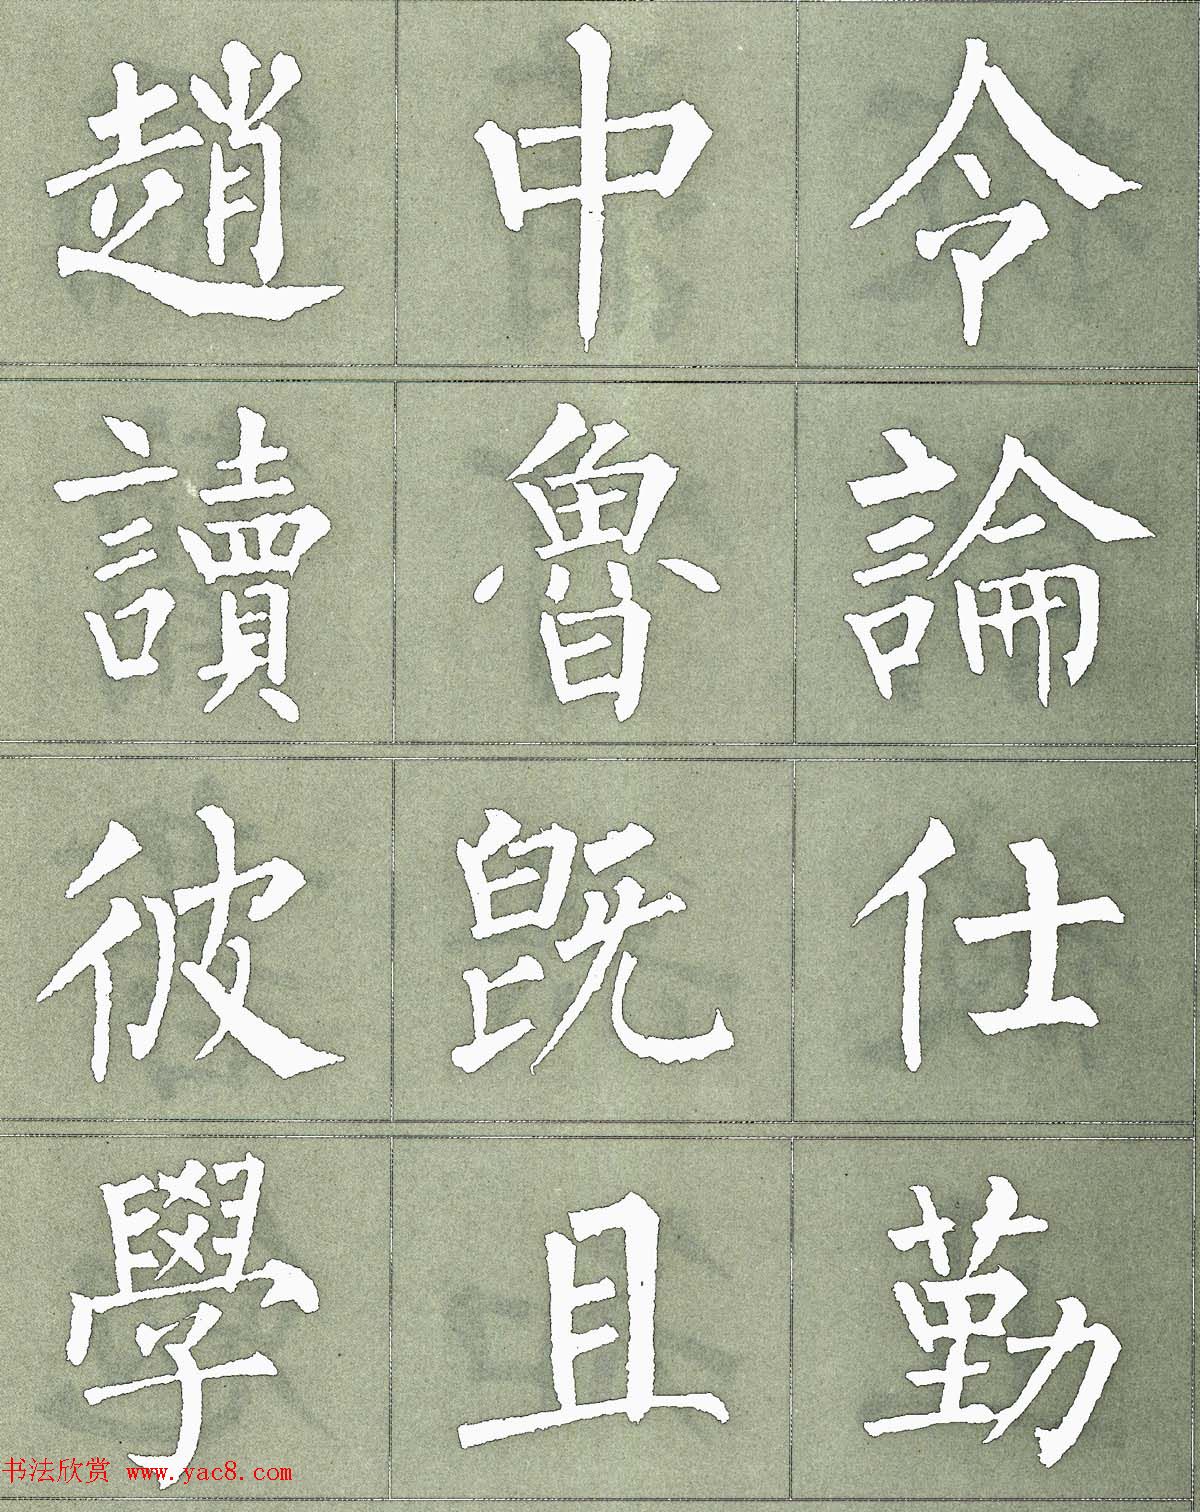 趙中令
讀魯論
彼既仕
學且勤
书法欣赏 www.yac8.com